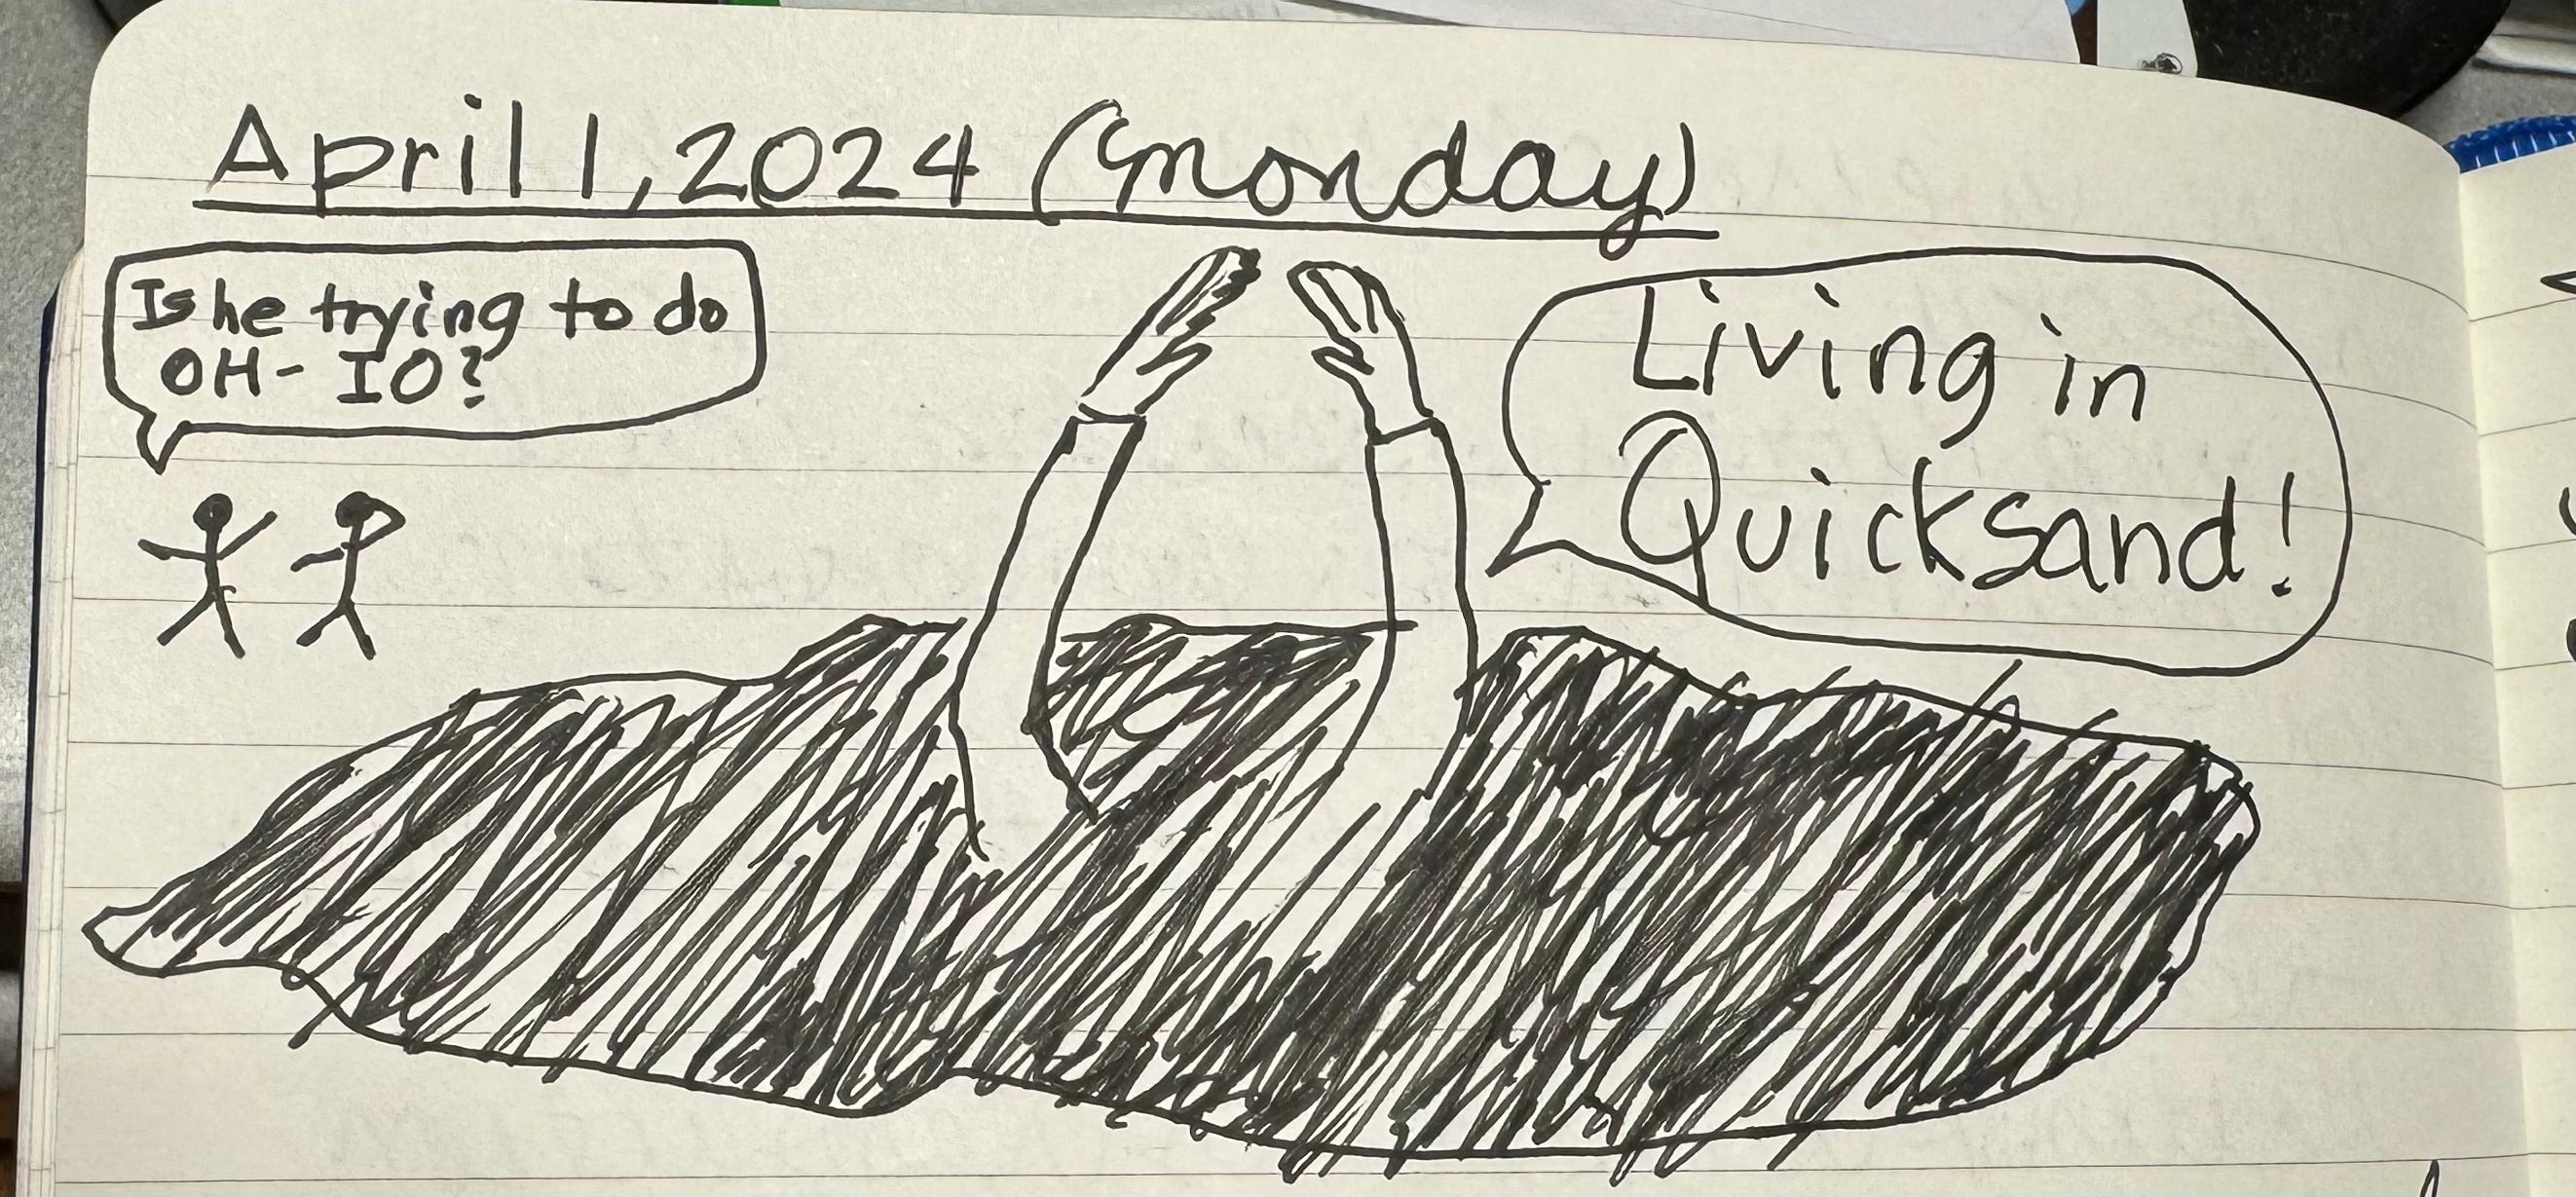 April 1, 2024 (Monday)
Is he trying to do
OH-IO?
Living in
Quicksand!